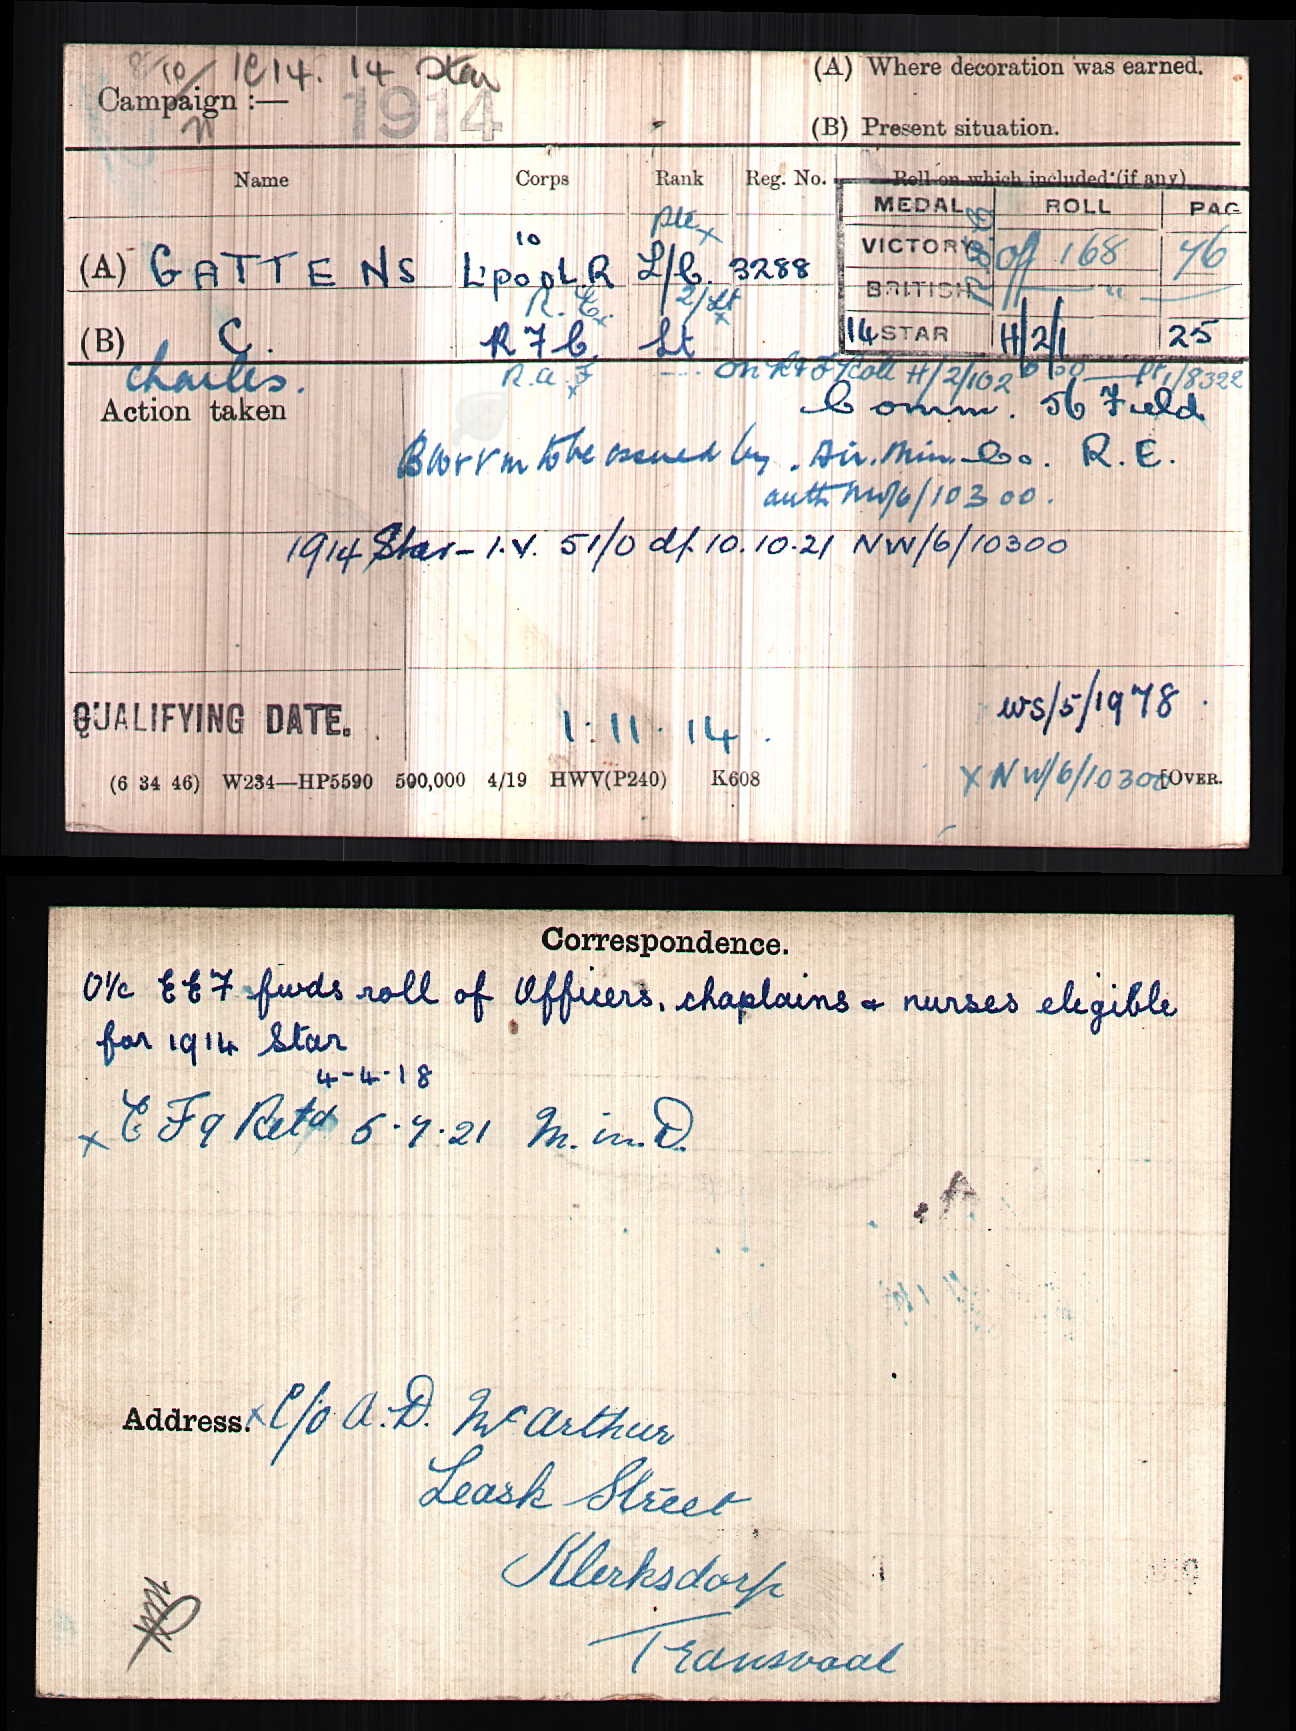 8/10/ 1914. 14 Star
Campaign :—
1914
(A) Where decoration was earned.
(B) Present situation.
Name Corps Rank Reg. No. Roll on which included (if any)
MEDAL ROLL PAG
VICTORY Off 168 76
BRITISH " 
14 STAR H/2/1 25
Pte x
(A) GATTENS 10 L'pool. R L/C. 3288
R. E. x 2/Lt x
(B) C. R F C Lt
Charles. R.a.F x on R A F Roll H/2/102 B00 Pt 1/8322
Action taken
Comm. 56 Field
BW & VM to be issued by . Air. Min. Co. R.E.
auth NW/6/10300.
1914 Star – I.V. 51/0 df. 10.10.21 NW/6/10300
QUALIFYING DATE. 1.11.14.
WS/5/1978.
(6 34 46) W234—HP5590 500,000 4/19 HWV(P240) K608
x NW/6/10300 [OVER.
Correspondence.
O i/c E E F fwds roll of Officers, chaplains & nurses eligible
for 1914 Star
4-4-18
x E F 9 Retd 5.7.21 M. in. D.
Address. x C/o A. D. McArthur
Leask Street
Klerksdorp
Transvaal